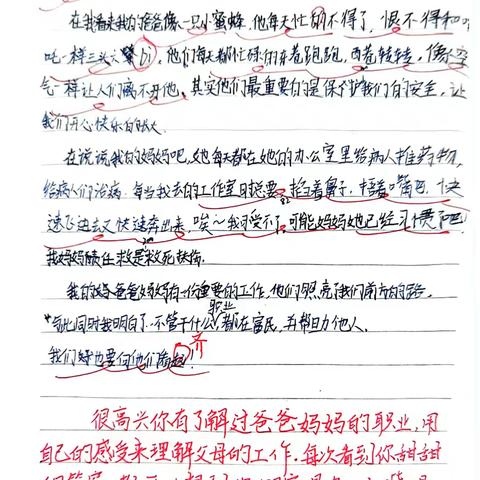 在我看来我的爸爸像一只小蜜蜂,他每天忙的不得了,恨不得和哪
吒一样三头六臂bì,他们每天都忙碌的东卷跑跑,西卷转转,像空
气一样让人们离不开他,其实他们最重要的是保护我们的安全,让
我们开心快乐的长大。
在说说我的妈妈吧,她每天都在她的办公室里给病人推药物,
给病人们治病,每当我去的工作室时总要捂着鼻子,捂着嘴巴,快
速飞进去又快速奔出来,唉~我可受不了,可能妈妈她已经习惯吧!
我妈妈责任就是救死扶伤。
我的爸爸妈妈有一份重要的工作,他们照亮了我们前方的路。
与此同时我明白了,不管干什么职业都在富民,并帮助他人。
我们好也要向他们看齐!
很高兴你有了解过爸爸妈妈的职业,用
自己的感受来理解父母的工作。每次看到你甜甜